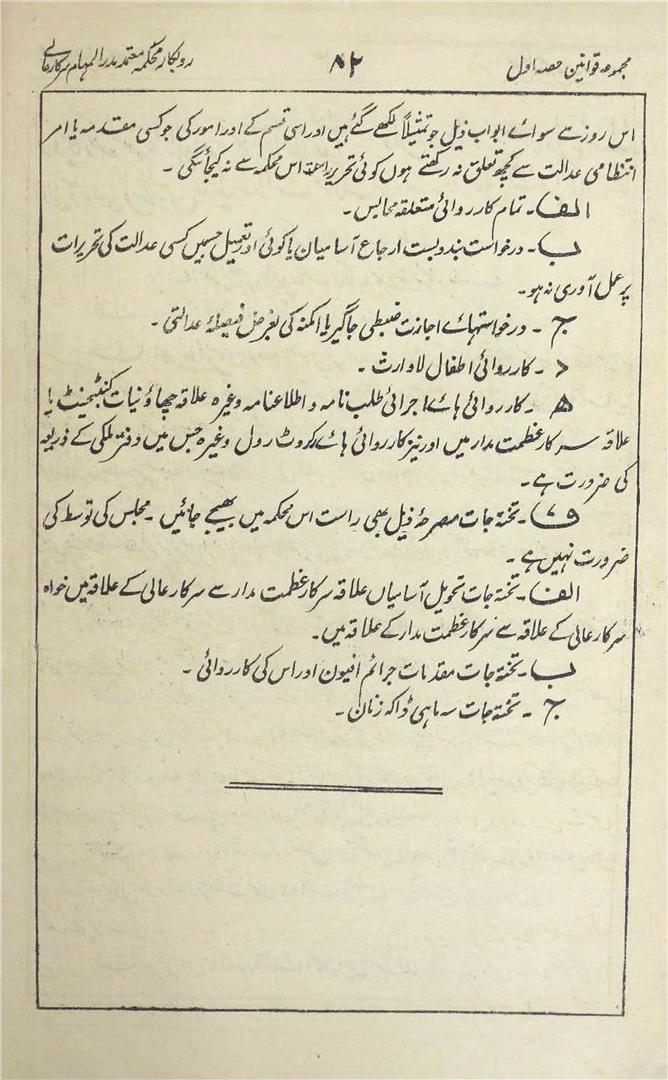 مجموعہ قوانین حصہ اول
۸۲
روبکار محکمہ معتمد مدار المہام سرکار عالی
اس روز سے سوائے ابواب ذیل جو تمثیلاً لکھے گئے ہیں اور اسی قسم کے اور امور کی جو کسی مقدمہ یا امر
انتظامی عدالت سے کچھ تعلق نہ رکھتے ہوں کوئی تحریر اس محکمہ سے نہ کیجائیگی ۔
الف ۔ تمام کارروائی متعلقہ محابس ۔
ب ۔ درخواست بندوبست ارجاع آسامیان یا کوئی اور تعمیل جسمیں کسی عدالت کی تحریرات
پر عمل آوری نہ ہو ۔
ج ۔ درخواستہائے اجازت ضبطی جاگیر یا امکنہ کی بغرض فیصلۂ عدالتی ۔
د ۔ کارروائی اطفال لاوارث ۔
ھ ۔ کارروائی ہائے اجرائی طلب نامہ و اطلاعنامہ وغیرہ علاقہ چھاؤنیات کنٹنجنٹ یا
علاقہ سرکار عظمت مدار میں اور نیز کارروائی ہائے وغیرہ جس میں دفتر ملکی کے ذریعہ
کی ضرورت ہے ۔
ف ۷ ۔ تختہ جات مصرحۂ ذیل بھی راست اس محکمہ میں بھیجے جائیں ۔ مجلس کی توسط کی
ضرورت نہیں ہے ۔
الف ۔ تختہ جات تحویل آسامیاں علاقہ سرکار عظمت مدار سے سرکار عالی کے علاقہ میں خواہ
سرکار عالی کے علاقہ سے سرکار عظمت مدار کے علاقہ میں ۔
ب ۔ تختہ جات مقدمات جرائم افیون اور اس کی کارروائی ۔
ج ۔ تختہ جات سہ ماہی ڈاکہ زنان ۔